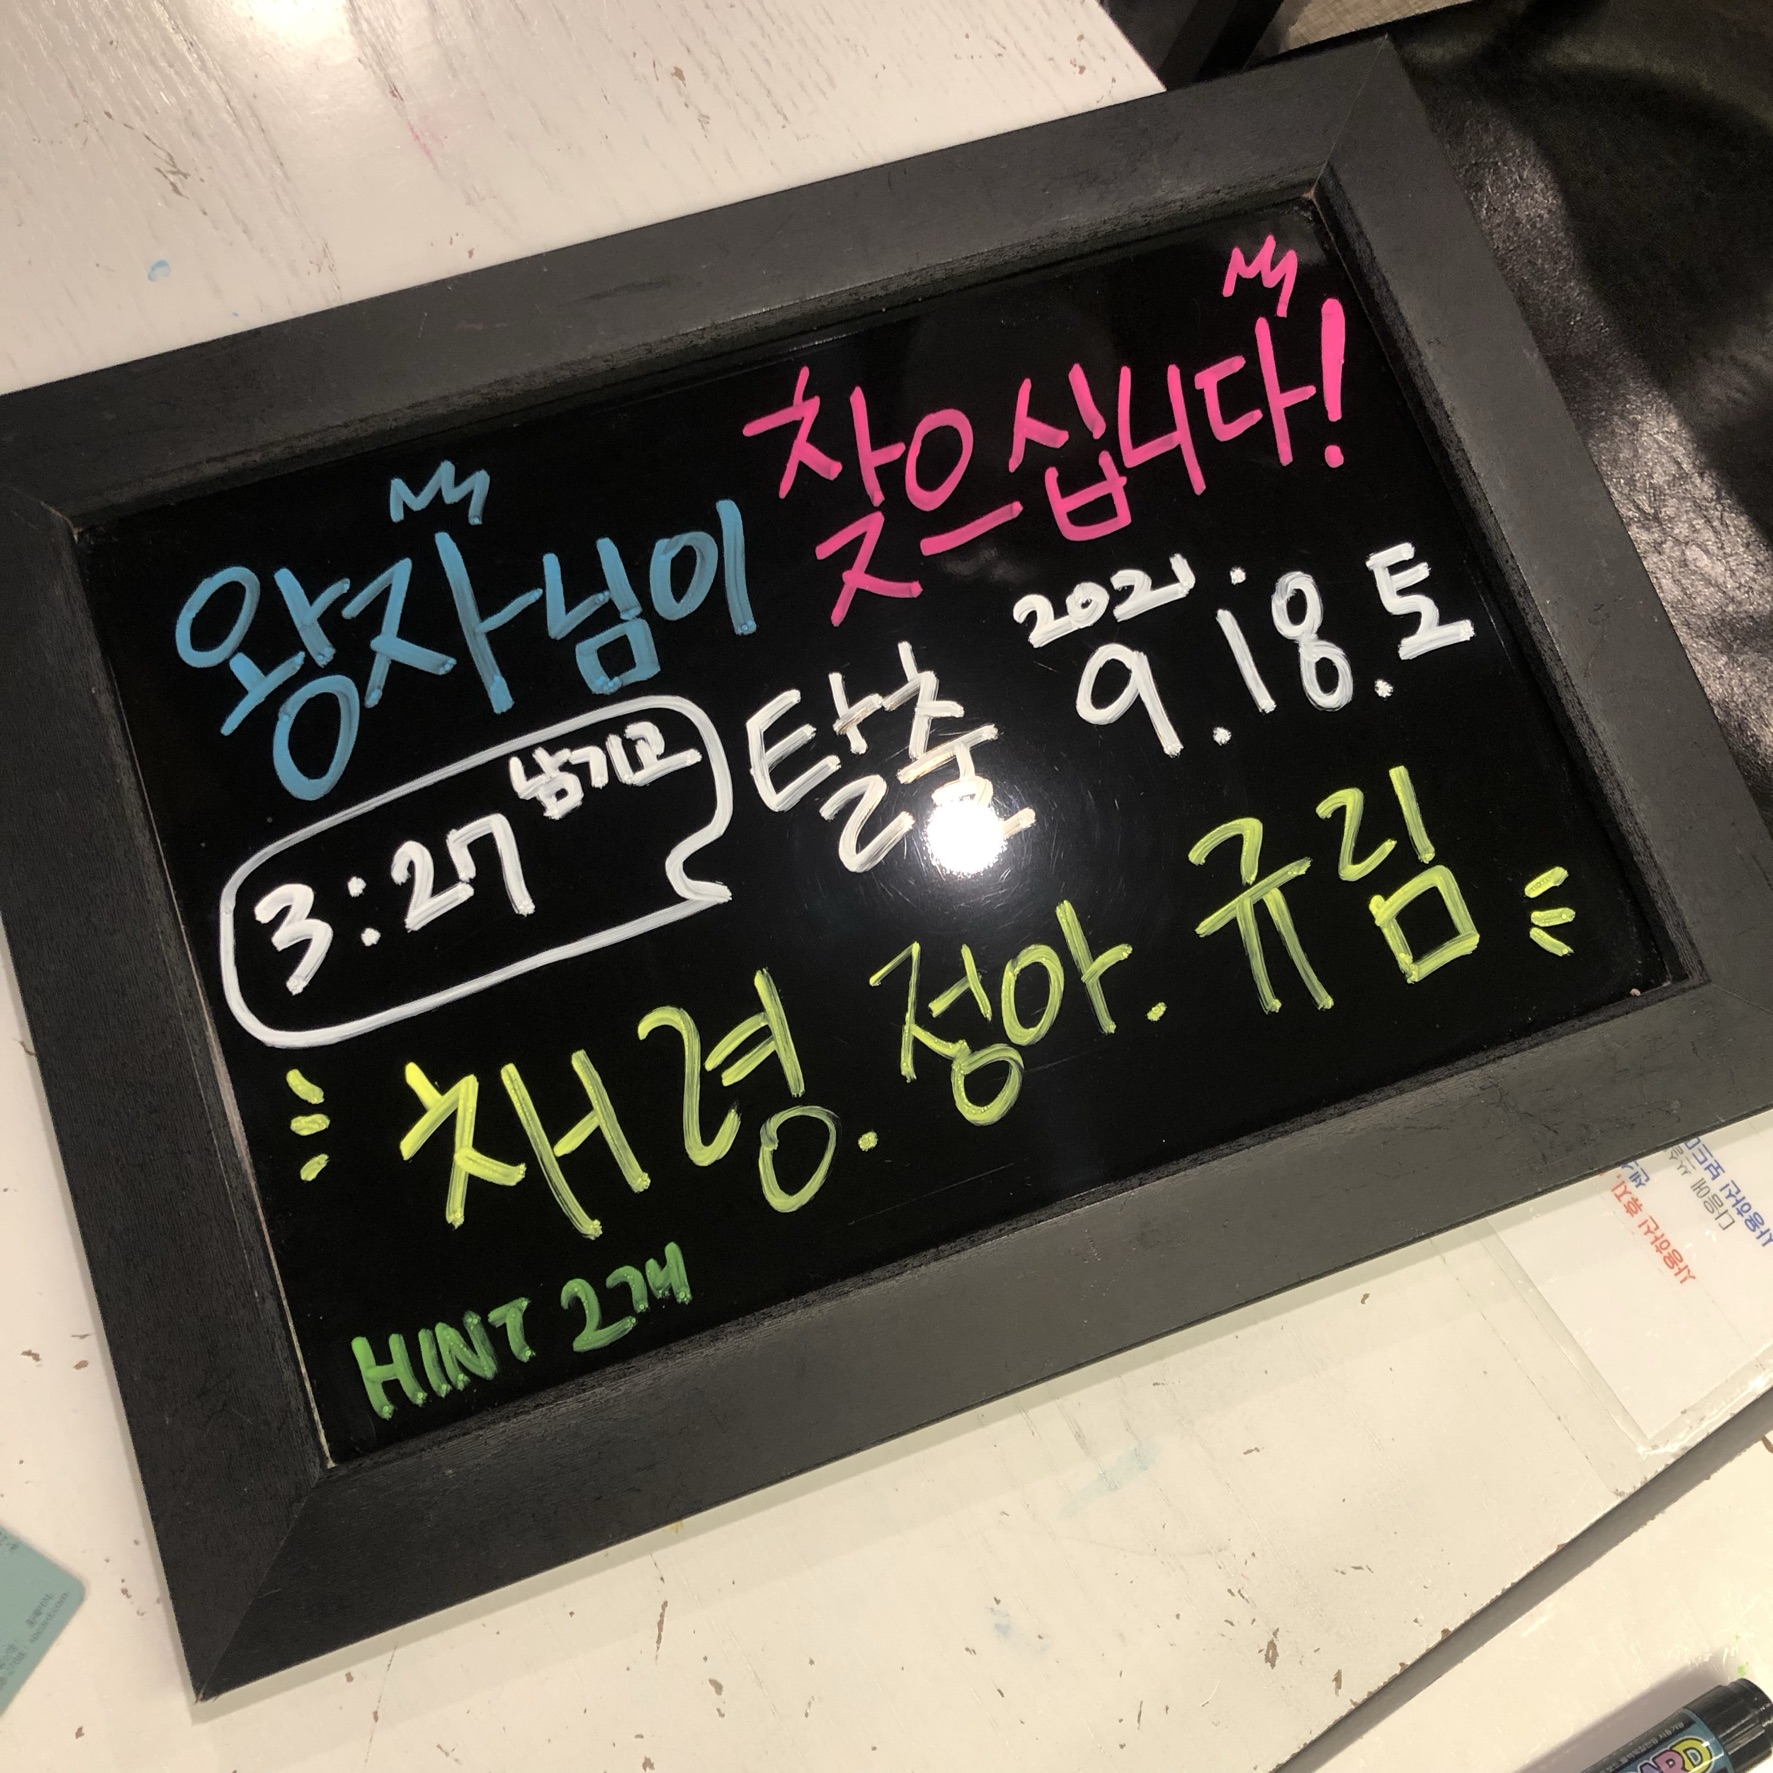 왕자님이 찾으십니다!
3:27 남기고 탈출 2021. 9.18.토
채령. 정아. 규림
HINT 2개